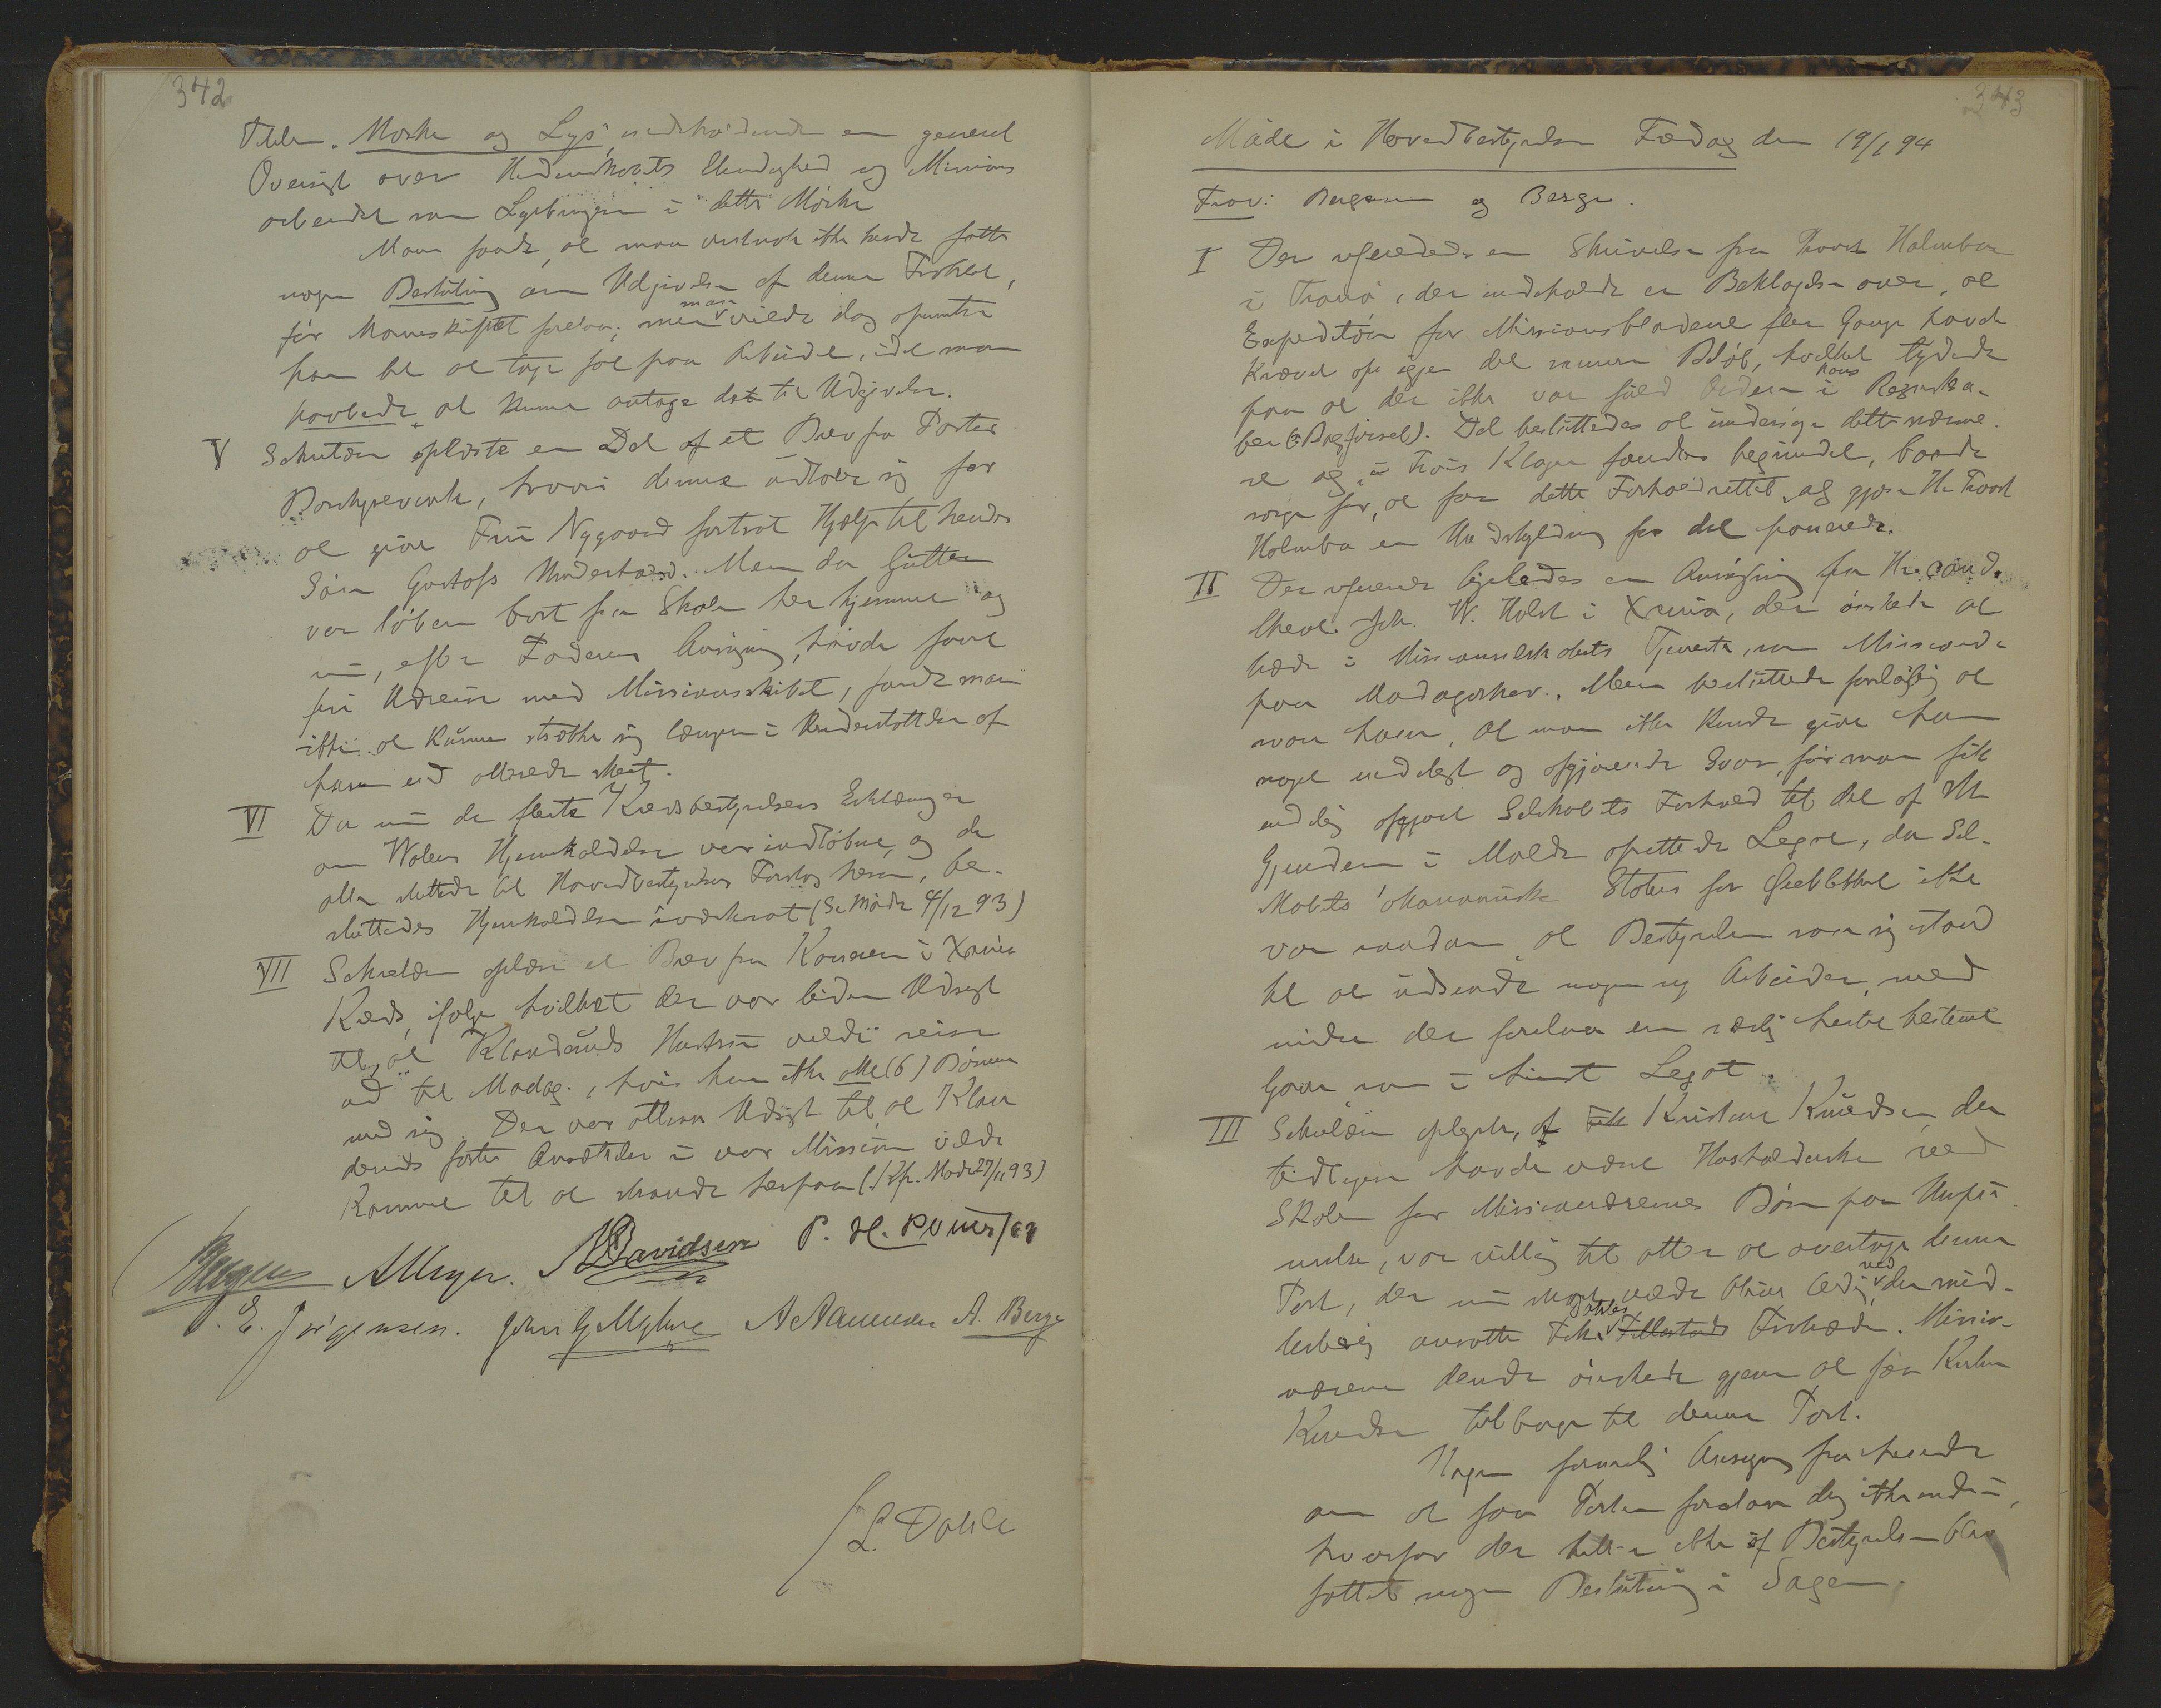 342
Titelen „Mørke og Lys", indeholdende en generel
Oversigt over Hedenskabets Elendighed og Missions
arbeidet som Lysbringer i dette Mørke
Man fandt, at man vistnok ikke kunde fatte
nogen Beslutning om Udgivelse af denne Traktat,
før Manuskriptet forelaa; men man vilde dog opmuntre
ham til at tage fat paa Arbeidet, idet man
haabede at kunne antage det til Udgivelse.
V Sekretæren oplæste en Del af et Brev fra Pastor
Borchgrevink, hvori denne udtaler sig for
at give Fru Nygaard fortsat Hjælp til hendes
Søn Gustafs Underhold. Men da Gutten
var løben bort fra Skolen her hjemme og
nu, efter Faderens Anvisning, havde faaet
fri Udreise med Missionsskibet, fandt man
ikke at kunne strække sig længere i Understøttelse af
ham end allerede skeet.
VI Da nu de fleste Kredsbestyrelsers Erklæringer
om Walens Hjemkaldelse var indløbne, og de
alle sluttede til Hovedbestyrelsens Forslag herom, be-
sluttedes Hjemkaldelsen iværksat (Se Møde 4/12 93)
VII Sekretæren oplæste et Brev fra Kassereren i Xania
Kreds, ifølge hvilket der var liden Udsigt
til, at Klandruds Hustru vilde reise
ud til Madag., hvis hun ikke fik alle (6) Børnene
med sig. Der var altsaa Udsigt til, at Klan
deruds faste Ansættelse i vor Mission vilde
komme til at strande herpaa (Kfr. Møde 27/11 93)
Borgen AMeyer. Davidsen P. H.
E. Jørgensen. John G Myhre A Aanensen A. Berge
L. Dahle
343
Møde i Hovedbestyrelsen Fredag den 19/1 94
Frav: Borgen og Berge.
I Der refereredes en Skrivelse fra Provst Holmboe
i Tranø, der indeholdt en Beklagelse over, at
Expeditøren for Missionsbladene flere Gange havde
krævet op igjen det samme Beløb, hvilket tydede
paa at der ikke var fuld Orden i hans Regnska-
ber (: Bogførsel). Det besluttedes at undersøge dette nærme-
re og, hvis Klagen fandtes begrundet, baade
sørge for, at faa dette Forhold rettet, og gjøre Hr. Provst
Holmboe en Undskyldning for det passerede.
II Der refereredes ligeledes en Ansøgning fra Hr. cand.
theol. W. Holst i Xania, der ønskede at
træde i Missionsselskabets Tjeneste, som Missionær
paa Madagaskar. Man besluttede foreløbig at
svare ham, at man ikke kunde give ham
noget endeligt og afgjørende Svar, før man fik
endelig afgjort Selskabets Forhold til det af
i Molde oprettede Legat, da Sel-
skabets økonomiske Status for Øieblikket ikke
var saadan, at Bestyrelsen saa sig istand
til at udsende nogen ny Arbeider, med
mindre der forelaa en særlig hertil bestemt
Gave, som i hint Legat.
III Sekretæren oplyste, at Kristine Knudsen, der
tidligere havde været Husholderske ved
Skolen for Missionærernes Børn paa Umpu-
mulo, var villig til atter at overtage denne
Post, der nu snart vilde blive ledig ved den mid-
lertidig ansatte Frk. Dahles Fratræden. Missio-
nærerne derude ønskede gjerne at faa Kristine
Knudsen tilbage til denne Post.
Nogen formelig Ansøgning fra hende
om at faa Posten forelaa dog ikke endnu,
hvorfor der heller ikke af Bestyrelsen blev
fattet nogen Beslutning i Sagen.